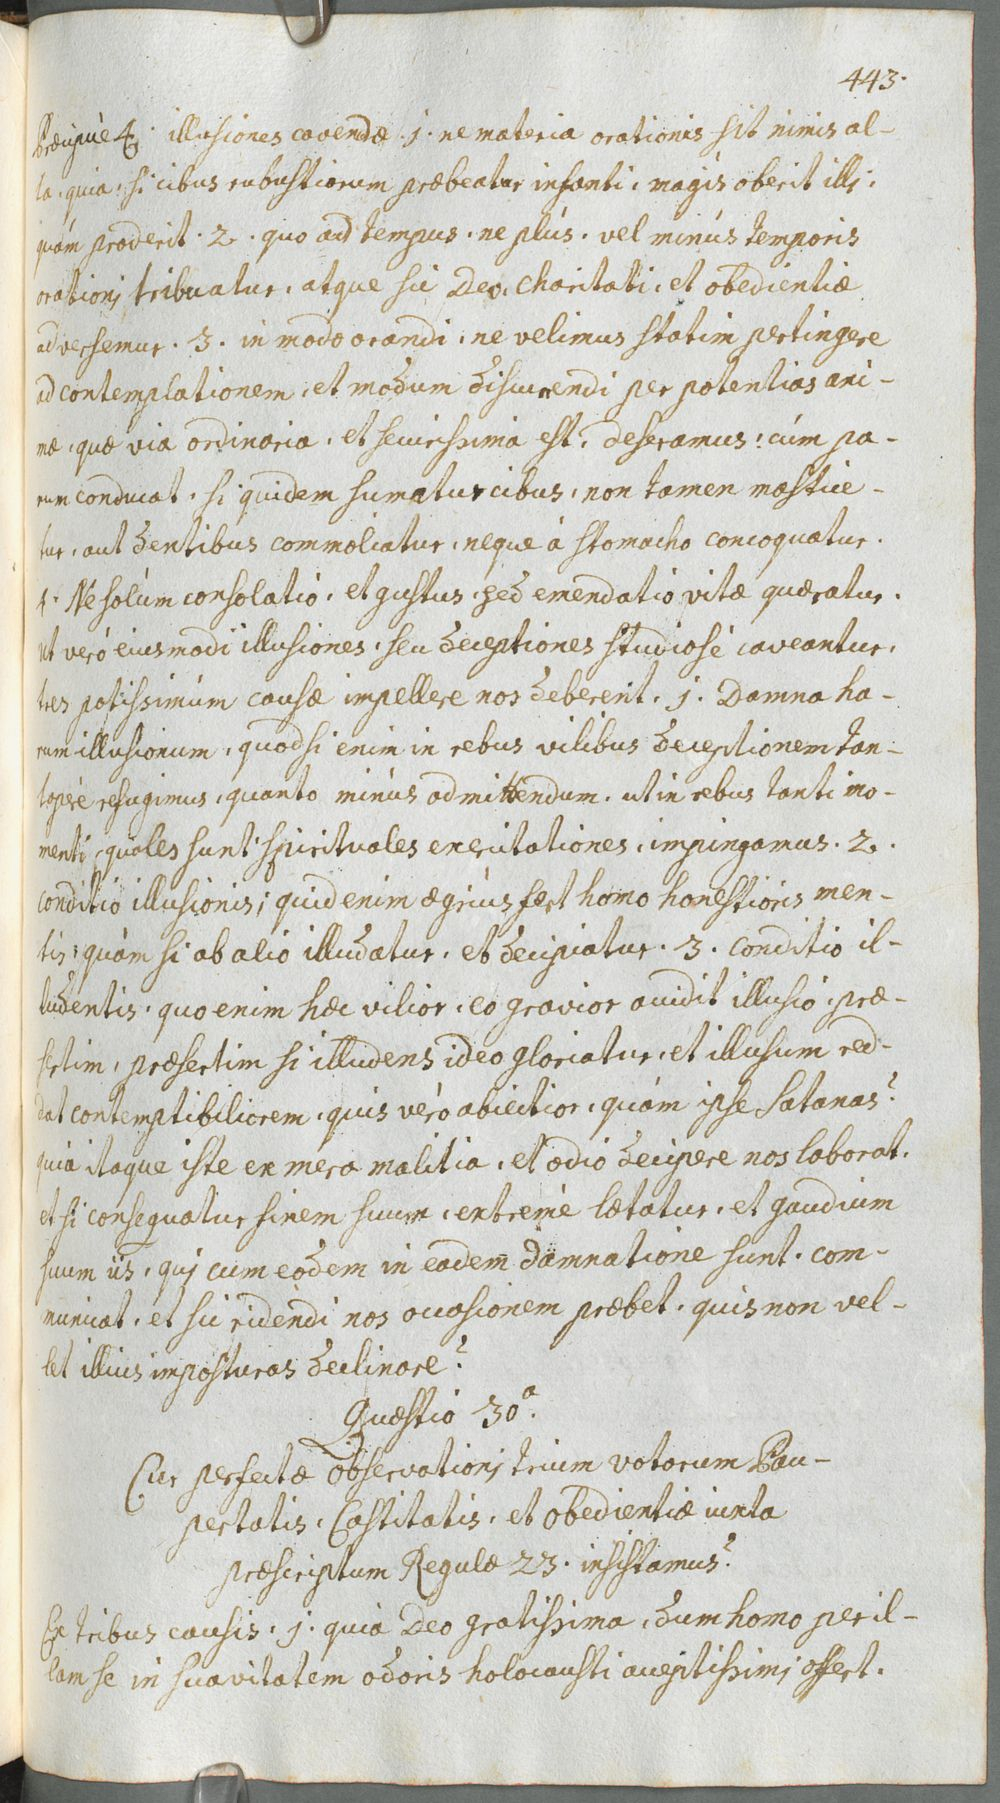 443.
Præcipuè 4. illusiones cavendæ. 1. ne materia orationis sit nimis al-
ta, quia, si cibus robustiorum præbeatur infanti, magis oberit illi,
quàm proderit. 2. quo ad tempus, ne plùs, vel minùs temporis
orationi tribuatur, atque sic Deo, charitati, et obedientiæ
adversemur. 3. in modo orandi, ne velimus statim pertingere
ad contemplationem, et modum discurrendi per potentias ani-
mæ, quæ via ordinaria, et securissima est, deseramus: cùm pa-
rum conducat, si quidem sumatur cibus, non tamen mastice-
tur, aut dentibus commoliatur, neque à stomacho concoquatur.
4. Ne solùm consolatio, et gustus, sed emendatio vitæ quæratur.
Ut verò eiusmodi illusiones, seu deceptiones studiosè caveantur,
tres potissimùm causæ impellere nos deberent. 1. Damna ha-
rum illusionum, quodsi enim in rebus vilibus deceptionem tan-
topere refugimus, quanto minùs admittendum, ut in rebus tanti mo-
menti, quales sunt spirituales exercitationes, impingamus. 2.
conditio illusionis; quid enim ægrius fert homo honestioris men-
tis, quàm si ab alio illudatur, et decipiatur. 3. conditio il-
ludentis, quo enim hæc vilior, eo gravior accidit illusio, præ-
sertim, præsertim si illudens ideo glorietur, et illusum red-
dat contemptibiliorem, quis verò abiectior, quàm ipse Satanas?
quia itaque iste ex mera malitia, et odio decipere nos laborat,
et si consequatur finem suum, extremè lætatur, et gaudium
suum iis, qui cum eodem in eadem damnatione sunt, com-
municat, et sic ridendi nos occasionem præbet, quis non vel-
let illius imposturas declinare?
Quæstio 30a.
Cur perfectæ observationi trium votorum Pau-
pertatis, Castitatis, et obedientiæ iuxta
præscriptum Regulæ 23. insistamus?
Ex tribus causis. 1. quia Deo gratissima, dum homo per il-
lam se in suavitatem odoris holocausti acceptissimi offert.